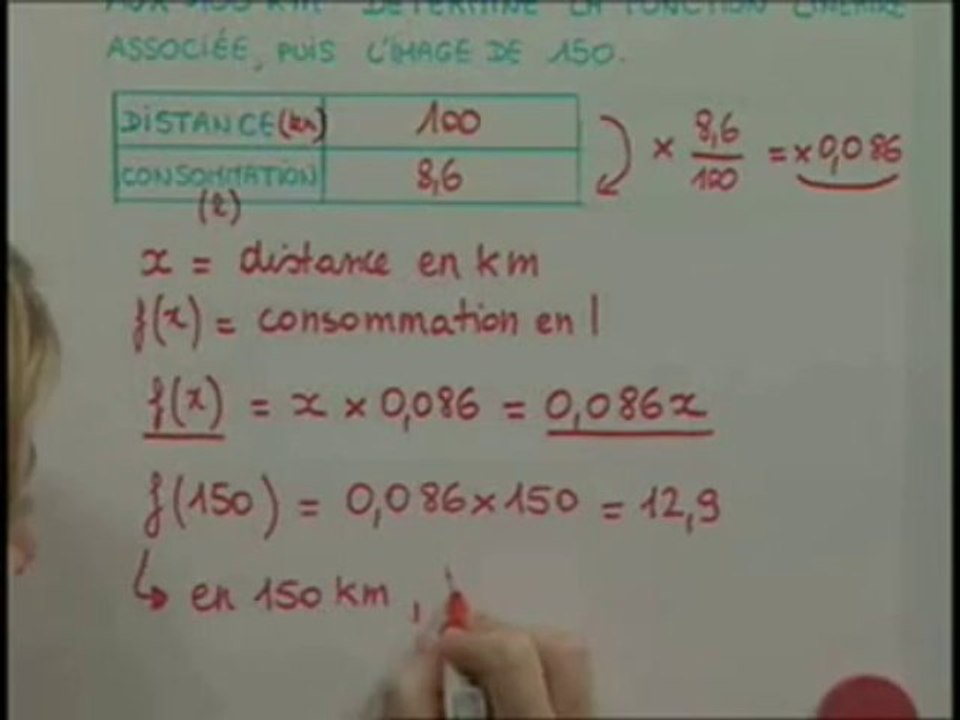 AUX 100 KM. DÉTERMINE LA FONCTION LINÉAIRE
ASSOCIÉE, PUIS L'IMAGE DE 150.
DISTANCE (km) 100
CONSOMMATION (l) 8,6
× 8,6/100 = × 0,086
x = distance en km
f(x) = consommation en l
f(x) = x × 0,086 = 0,086x
f(150) = 0,086 × 150 = 12,9
↳ en 150 km,